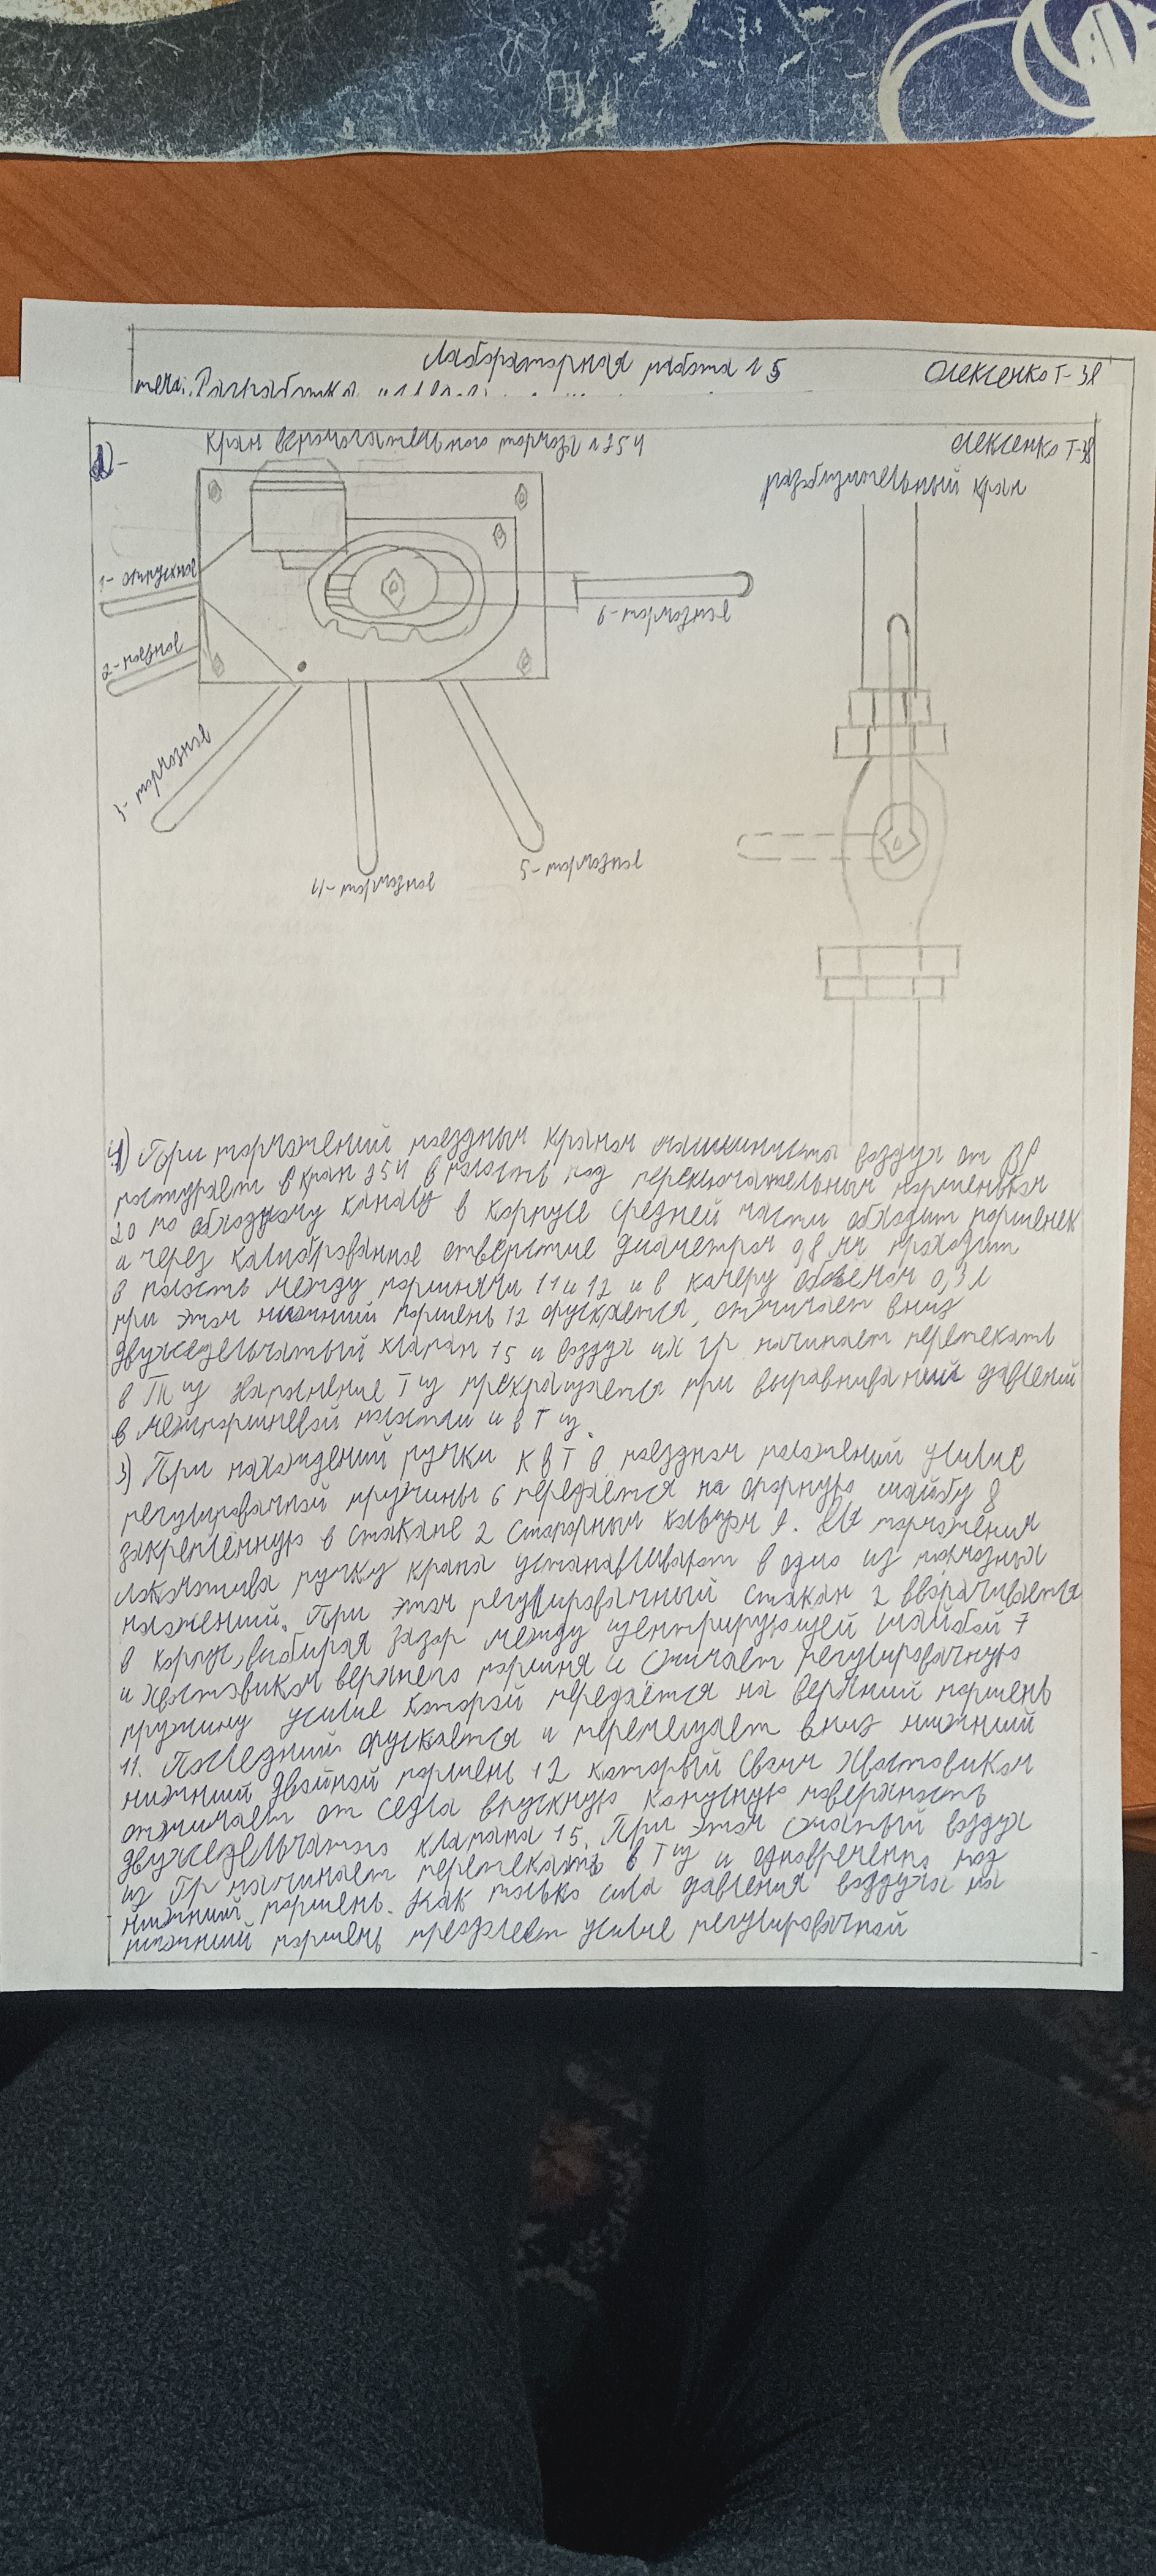 Лабораторная работа №5
Олексенко Т-38
тема: Разработка
1)
Кран вспомогательного тормоза №254
Олексенко Т-38
разобщительный кран
1- отпускное
2- поездное
3- тормозное
4- тормозное
5- тормозное
6- тормозное
4) При торможений поездным краном машиниста воздух от ВР
поступает в кран 254 в полость под переключательным поршеньком
20 по обходному каналу в корпусе средней части обходит поршенек
и через калиброванное отверстие диаметром 0,8 мм проходит
в полость между поршнями 11 и 12 и в камеру объемом 0,3 л
при этом нижний поршень 12 опускается, отжимает вниз
двухседельчатый клапан 15 и воздух их гр начинает перетекать
в ТЦ Наполнение Тц прекращается при выравниваний давлений
в межпоршневой полости и в Тц.
3) При нахождений ручки КВТ в поездном положений усилие
регулировачной пружины 6 передаётся на опорную шайбу 8
закреплённую в стакане 2 стопорным кольцом 9. Для торможения
локомотива ручку крана устанавливают в одно из тормозных
положений. При этом регулировачный стакан 2 вворачивается
в корпус, выбирая зазор между центрирующей шайбой 7
и хвостовиком верхнего поршня и сжимает регулировачную
пружину усилие которой передаётся на верхний поршень
11. Последний опускается и перемещает вниз нижний
нижний двойной поршень 12 который своим хвостовиком
отжимает от седла впускную конусную поверхность
двухседельчатого клапана 15. При этом сжатый воздух
из Гр начинает перетекать в Тц и одновременно под
нижний поршень. Как только сила давления воздуха на
нижний поршень преодолеет усилие регулировачной